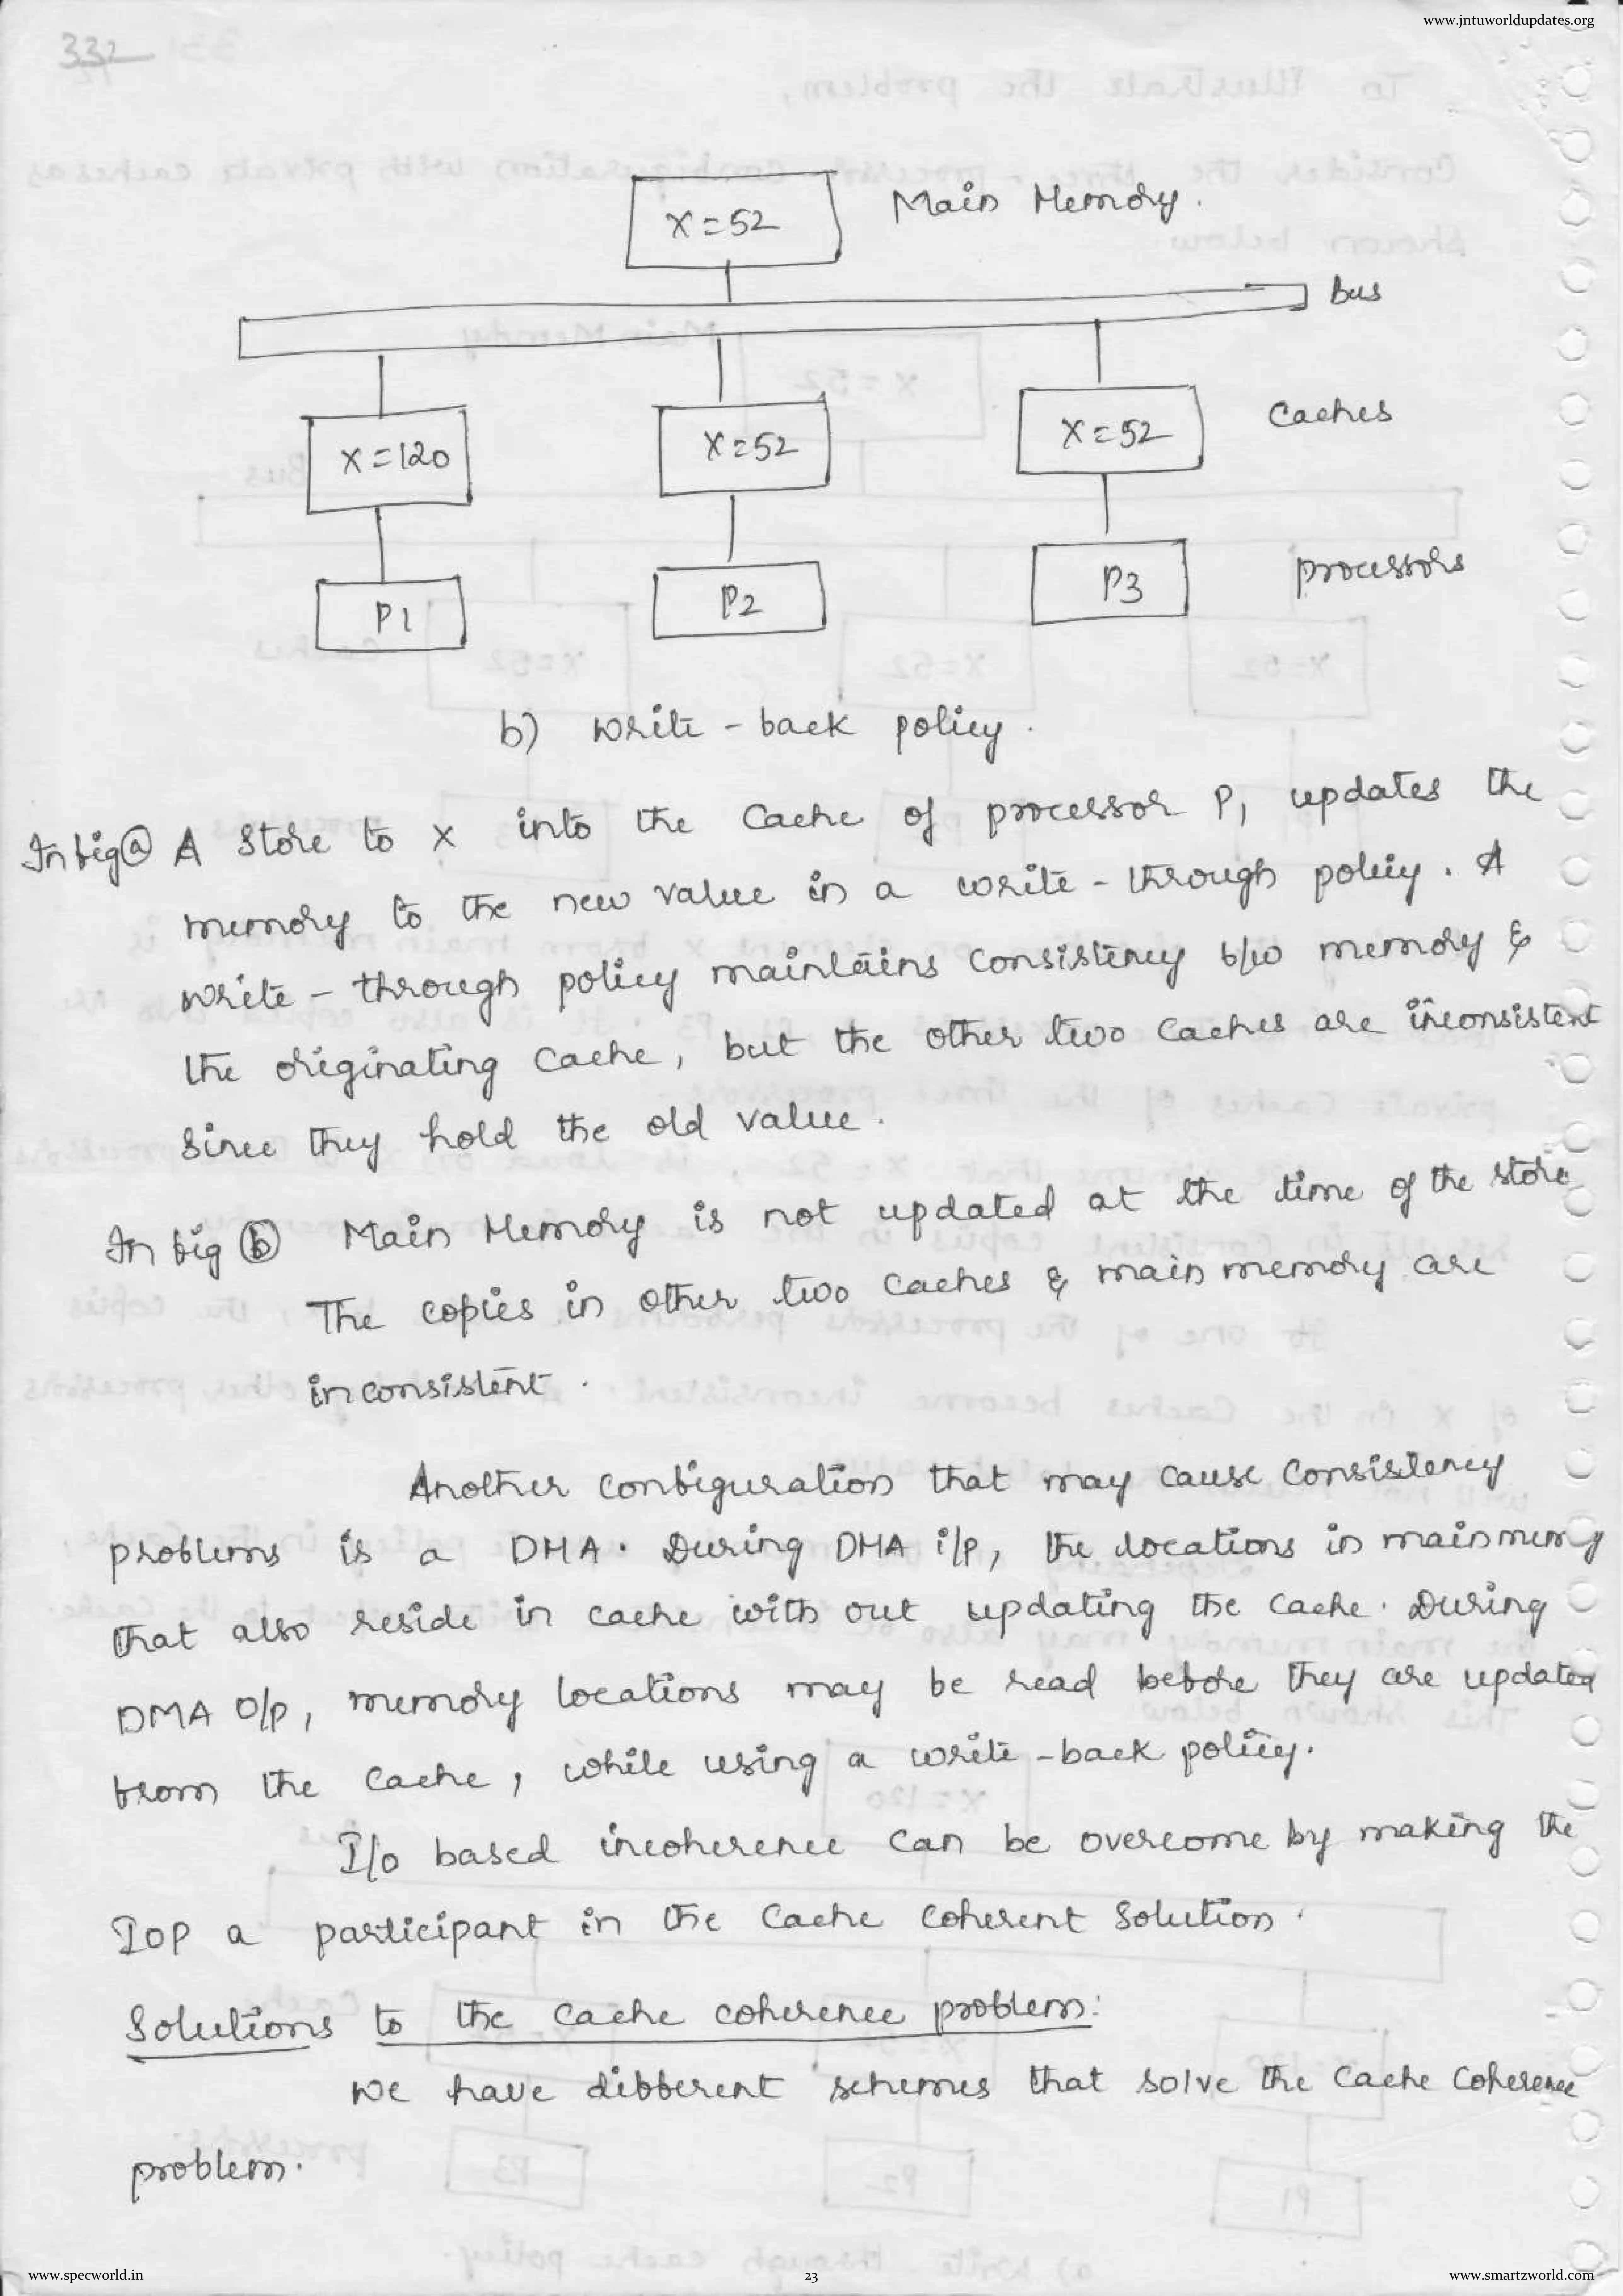 www.jntuworldupdates.org
332
X=52
Main Memory.
Bus
X=120
X=52
X=52
Caches
P1
P2
P3
processors
b) write - back policy.
In fig (a) A Store to X into the Cache of processor P1 updates the
memory to the new value in a write - through policy. A
write - through policy maintains Consistency b/w memory &
the originating Cache, but the other two Caches are inconsistent
Since they hold the old value.
In fig (b) Main Memory is not updated at the time of the store
The copies in other two Caches & main memory are
inconsistent.
Another configuration that may cause Consistency
problems is a DMA. During DMA i/p, the locations in main memory
that also reside in cache with out updating the cache. During
DMA O/p, memory locations may be read before they are updated
from the cache, while using a write - back policy.
I/o based incoherence can be overcome by making the
IOP a participant in the Cache Coherent Solution.
Solutions to the Cache coherence problem:
We have different schemes that solve the Cache Coherence
problem.
www.specworld.in
23
www.smartzworld.com